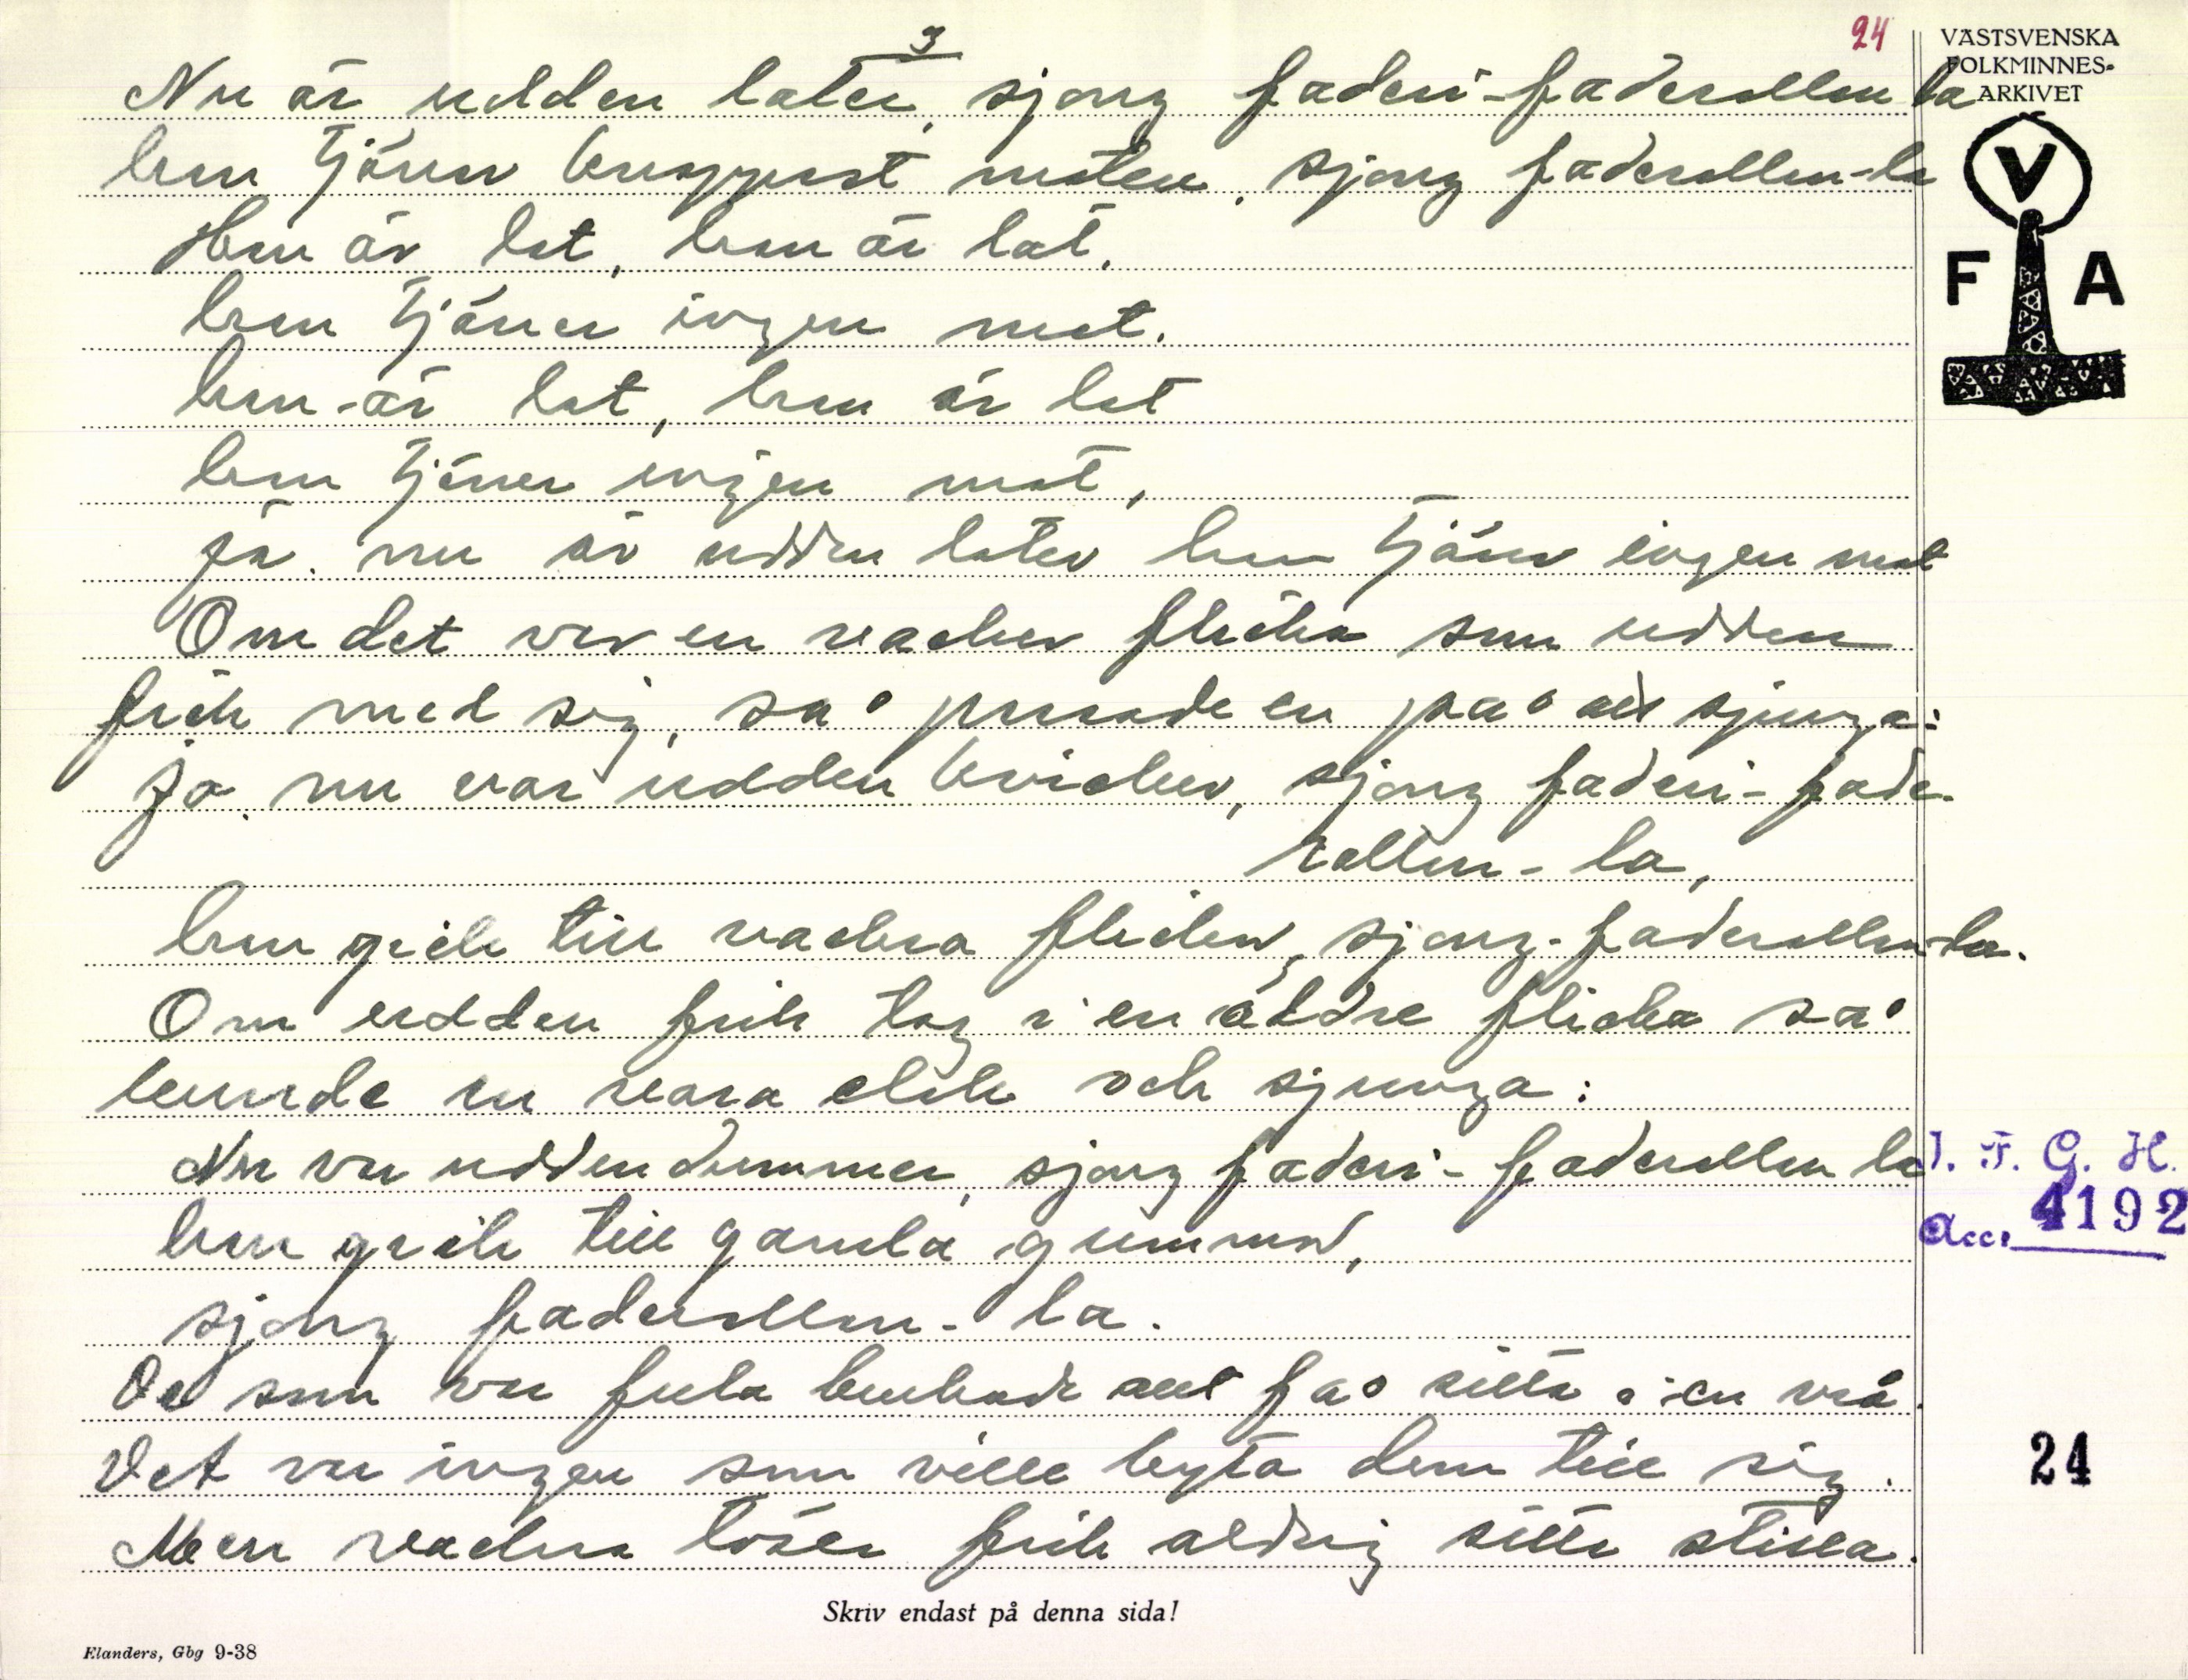 3
24
VÄSTSVENSKA
FOLKMINNES-
ARKIVET
V
F A
Nu är udden later, sjong faderi-faderallen la
han tjänar knappast maten, sjong faderallen-la
Han är lat, han är lat,
han tjänar ingen mat.
han är lat, han är lat
han tjänar ingen mat,
ja. nu är udden later han tjänar ingen mat
Om det var en vacker flicka som udden
fick med sig, så passade en på att sjunga:
Ja. nu var udden kvicker, sjong faderi-fade-
rallen-la,
han gick till vackra flickor, sjong-faderallen-la.
Om udden fick tag i en äldre flicka så
kunde en vara elak och sjunga:
Nu var udden dummer, sjong faderi-faderallen la
han gick till gamla gummor,
sjong faderallen-la.
De som var fula brukade att få sitta i en vrå.
Det var ingen som ville byta dem till sig.
Men vackra töser fick aldrig sitta stilla.
I. F. G. H.
Acc. 4192
24
Skriv endast på denna sida!
Elanders, Gbg 9-38